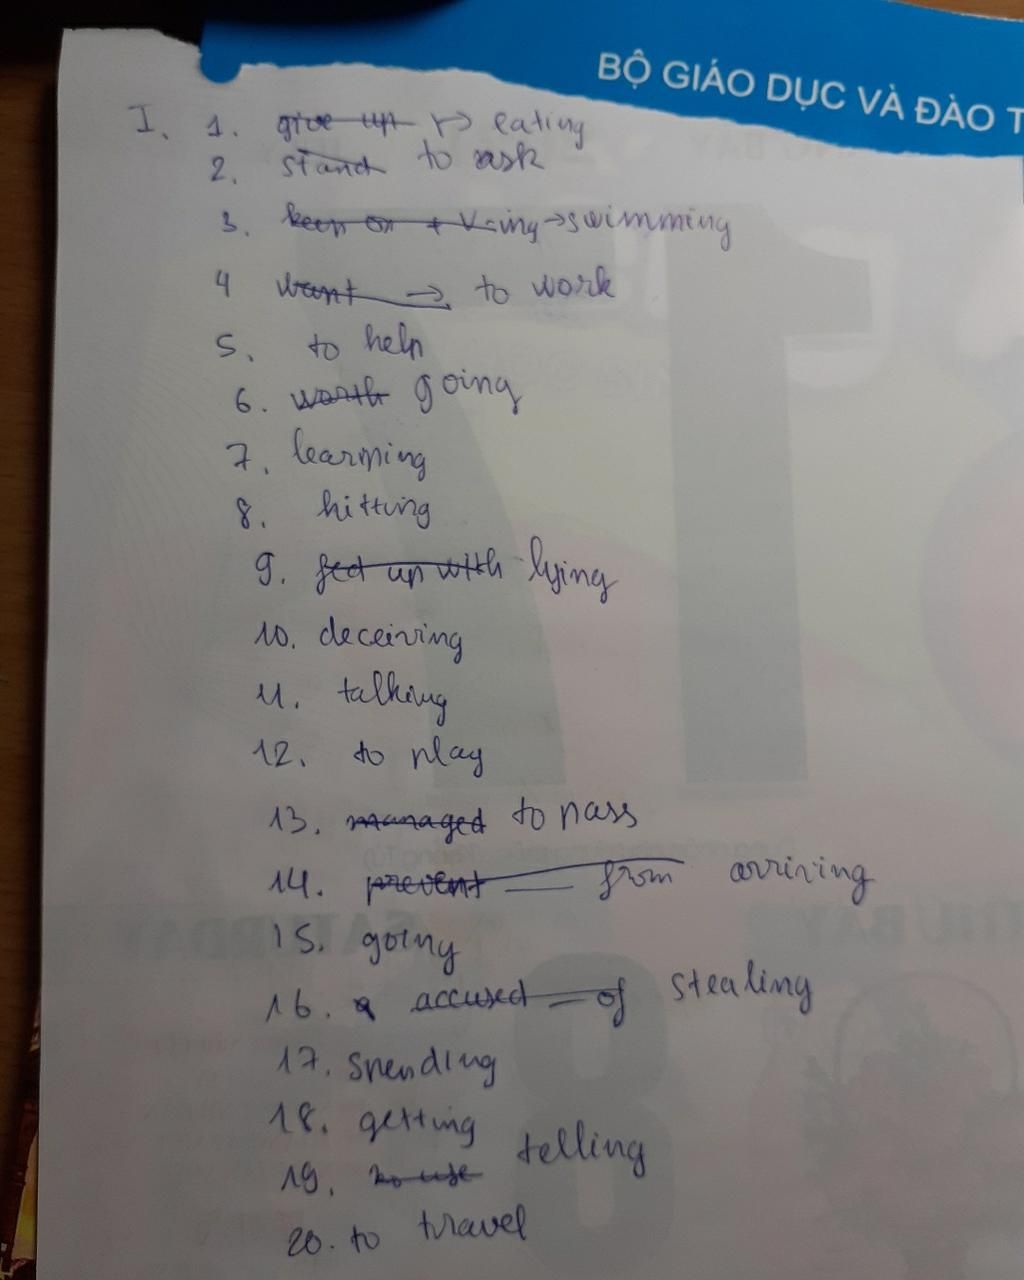 BỘ GIÁO DỤC VÀ ĐÀO T
I. 1. give up → eating
2. stand to ask
3. keep on + V-ing → swimming
4 want → to work
5. to help
6. worth going
7. learning
8. hitting
9. fed up with lying
10. deceiving
11. talking
12. to play
13. managed to pass
14. prevent — from arriving
15. going
16. accused — of stealing
17. spending
18. getting
19. no use telling
20. to travel